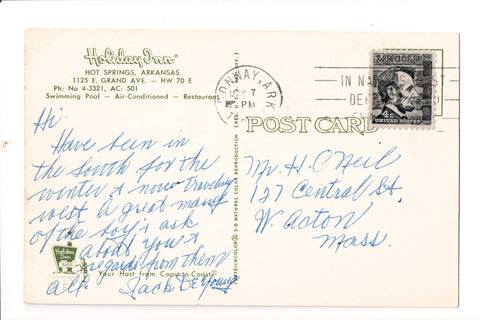 Holiday Inn®
HOT SPRINGS, ARKANSAS
1125 E. GRAND AVE. - HW 70 E
Ph: Na 4-3321, AC: 501
Swimming Pool — Air-Conditioned — Restaurant
CONWAY, ARK
PM
IN
4¢
UNITED STATES
POST CARD
Hi.
Have been in
the South for the
winter & now traveling
west. A great many
of the boy's ask
about you &
regards from them
all. Jack DeYoung
Holiday Inn
Your Host from Coast to Coast®
3-D NATURAL COLOR REPRODUCTION
Mr. H. O'Neil
127 Central St,
W. Acton
Mass.